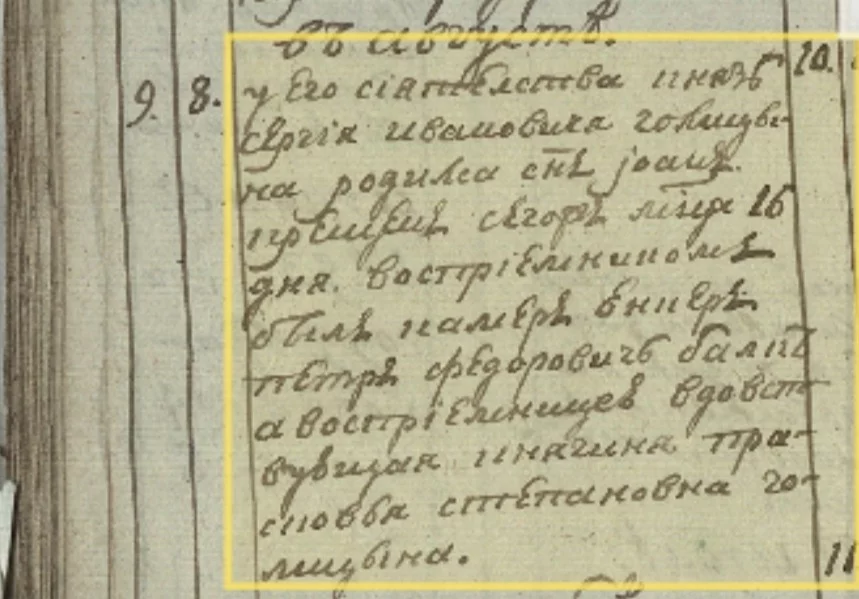 въ августѣ.
9. 8. у Его сіятелства князь 10.
сергія ивановича голицы-
на родился снъ јоанъ
крещенъ сегожъ мсца 16
дня. воспріемникомъ
былъ камеръ юнкеръ
петръ федоровичъ балкъ
а воспріемницею вдовст-
вующая княгиня пра-
сковья степановна го-
лицына. 11